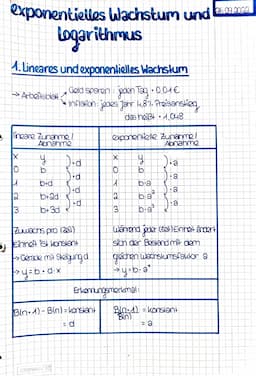 exponentielles Wachstum und
Logarithmus
1. Lineares und exponentielles Wachstum
→ Arbeitsblatt
Geld sparen: jeden Tag + 0,01€
Inflation: jedes Jahr 4,8% Preisanstieg
das heißt · 1,048
lineare Zunahme/
Abnahme
exponentielle Zunahme/
Abnahme
x y
0 b
1 b+d
2 b+2d
3 b+3d
+d
+d
+d
x y
0 b
1 b·a
2 b·a²
3 b·a³
·a
·a
·a
Zuwachs pro (Zeit)
Einheit ist konstant
→ Gerade mit Steigung d
→ y = b + d·x
Während jeder (Zeit) Einheit ändert
sich der Bestand mit dem
gleichen Wachstumsfaktor a
→ y = b·aˣ
Erkennungsmerkmal:
B(n+1) - B(n) = konstant
= d
B(n+1)/B(n) = konstant
= a